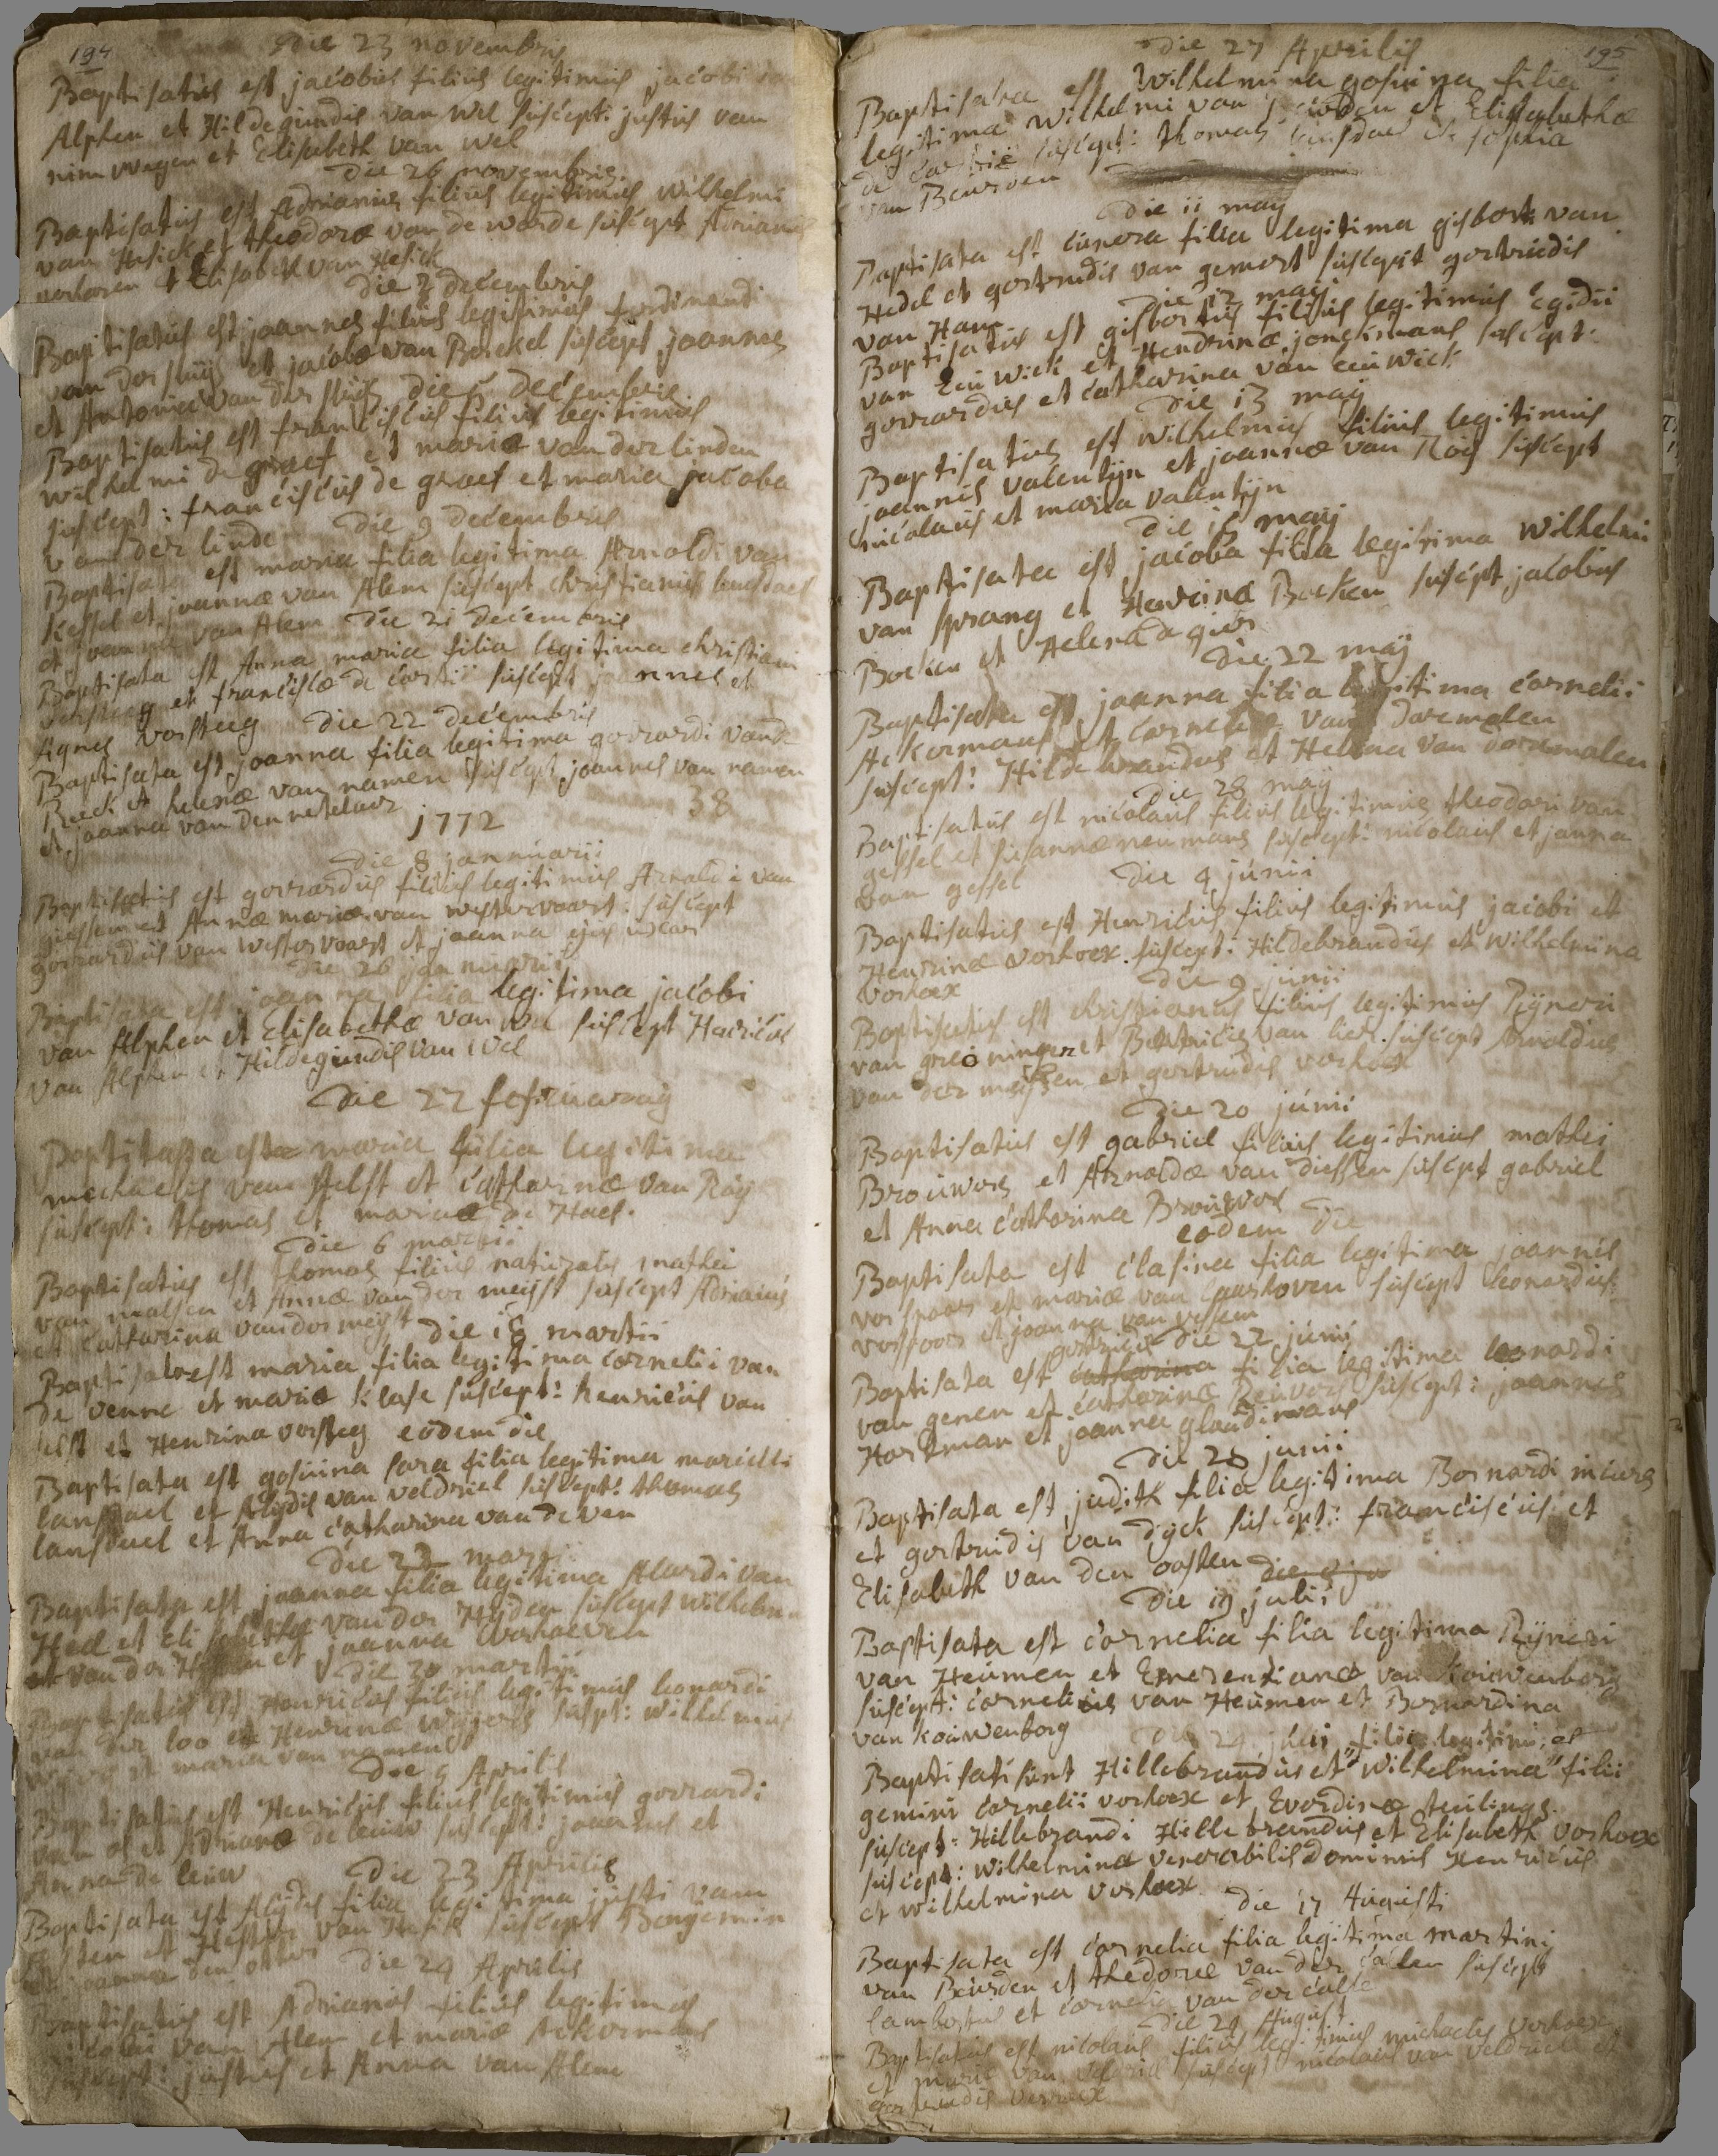 194
die 23 novembris
Baptisatus est jacobus filius legitimus jacobi
Alphen et Hildegundis van wel suscept: justus van
nimwegen et Elisabeth van wel
die 26 novembris.
Baptisatus est Adrianus filius legitimus wilhelmi
van Hesick et theodoræ van de warde suscept Adrianus
verhoren et Elisabeth van Hesick
die 3 decembris
Baptisatus est joannes filius legitimus ferdinandi
van der sluijs et jacobæ van Berckel suscept joannes
et Antonia van der sluijs die 5 decembris
Baptisatus est franciscus filius legitimus
wilhelmi de graef et mariæ van der linden
suscept: franciscus de graef et maria jacoba
van der linde die 9 decembris
Baptisata est maria filia legitima Arnoldi van
Kessel et joannæ van Alem suscept christianus
et joanna van Alem die 21 decembris
Baptisata est Anna maria filia legitima christiani
versteeg et franciscæ de cortii suscept joannes et
Agnes versteeg die 22 decembris
Baptisata est joanna filia legitima gerrardi vand
Beeck et helenæ van namen suscept joannes van namen
et joanna van den netelaer
1772 38
die 8 jannuarii
Baptisatus est gerrardus filius legitimus Arnoldi van
giessen et Annæ mariæ van westervoort. suscept
gerrardus van westervoort et joanna ejus uxor
die 26 jannuarii
Baptisata est joanna filia legitima jacobi
van Alphen et Elisabethæ van wel suscept Henricus
van Alphen et Hildegundis van wel
die 27 februarij
Baptisata est maria filia legitima
michaelis van Aelst et catharinæ van Roij
suscept: thomas et maria de Haes.
die 6 martii
Baptisatus est thomas filius naturalis mathei
van malsen et Annæ van der meijst suscept Adrianus
et catharina van der meijst die 18 martii
Baptisata est maria filia legitima cornelii van
de venne et mariæ Klase suscept: henricus van
et Henrina versteg eodem die
Baptisata est gosuina sara filia legitima marcelli
lansdael et Aleijdis van veldriel suscept: thomas
lansdael et Anna catharina van de ven
die 23 martii
Baptisata est joanna filia legitima Alardi van
Heel et Elisabethæ van der Heijden suscept wilhelmus
van der et joanna verhoeven
die 30 martii
Baptisatus est Henricus filius legitimus leonardi
van der loo et Henrinæ weijers suspt: wilhelmus
et maria van namen
die 9 Aprilis
Baptisatus est Henricus filius legitimus gerrardi
van os et Adrianæ de leuw suscept: joannes et
Anna de leuw die 23 Aprilis
Baptisata est Aleijdis filia legitima justi van
Asten et Hester van Hesik suscept Bengemin
et joanna den otter die 24 Aprilis
Baptisatus est Adrianus filius legitimus
van Alem et mariæ Ackermans
suscept: justus et Anna van Alem
195
die 27 Aprilis
Baptisata est wilhelmina gosuina filia
legitima wilhelmi van et Elisabethæ
de suscept: thomas lansdael et sophia
van Beurden
die 11 maij
Baptisata est cunera filia legitima gisberti van
Hedel et gertrudis van gemert suscepit gertrudis
van Ham die 12 maij
Baptisatus est gisbertus filius legitimus Egidii
van Eeuwick et Hendrinæ jonckmans suscept:
gerrardus et catharina van eeuwick
die 13 maij
Baptisatus est wilhelmus filius legitimus
joannis valentijn et joannæ van Roij suscept
nicolaus et maria valentijn
die 15 maij
Baptisata est jacoba filia legitima wilhelmi
van sprang et Henrinæ Boeken suscept jacobus
Boeken et Helena de gier
die 22 maij
Baptisata est joanna filia legitima cornelii
Ackermans et corneliæ van doremalen
suscept: Hildebrandus et Helena van doremalen
die 28 maij
Baptisatus est nicolaus filius legitimus theodori van
gessel et susannæ neumans suscept: nicolaus et janna
van gessel die 4 junii
Baptisatus est Henricus filius legitimus jacobi et
Henrinæ verhoex. suscept: Hildebrandus et wilhelmina
verhoex die 9 junii
Baptisatus est christianus filius legitimus Rijneri
van greoningen et Beatricis van lier. suscept Arnoldus
van der meijden et gertrudis verhoex
die 20 junii
Baptisatus est gabriel filius legitimus mathei
Brouwers et Arnoldæ van diessen suscept gabriel
et Anna catharina Brouwer
eodem die
Baptisata est clasina filia legitima joannis
verspoor et mariæ van laarhoven suscept leonardus
verspoor et joanna van vessem
gertrudis die 22 junii
Baptisata est catharina filia legitima leonardi
van genen et catharinæ Reuvers suscept: joannes
Hartman et joanna glaudimans
die 28 junii
Baptisata est judith filia legitima Bernardi
et gertrudis van dijck suscept: franciscus et
Elisabeth van den oosten
die 19 julii
Baptisata est cornelia filia legitima Rijneri
van Heumen et Emerentianæ van Kouwenberg
suscept: cornelius van Heumen et Bernardina
van Kouwenberg die 24 julii filii legitimi et
Baptisati sunt Hillebrandus et wilhelmina filii
gemini cornelii verhoex et Everdinæ teulings.
suscept: Hillebrandi Hillebrandus et Elisabeth verhoex
suscept: wilhelminæ venerabilis dominus Henricus
et wilhelmina verhoex die 17 Augusti
Baptisata est cornelia filia legitima martini
van Beurden et thedoræ van der callen suscept
lambertus et cornelia van der calle
die 29 August
Baptisatus est nicolaus filius legitimus michaelis verhoex
et mariæ van veldriel suscept nicolaus van veldriel et
gertrudis verhoex